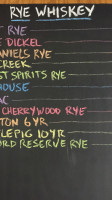 RYE WHISKEY
RYE
DICKEL
DANIELS RYE
CREEK
SPIRITS RYE
HOUSE
CHERRYWOOD RYE
TON 6 YR
LEPIG 10 YR
ORD RESERVE RYE